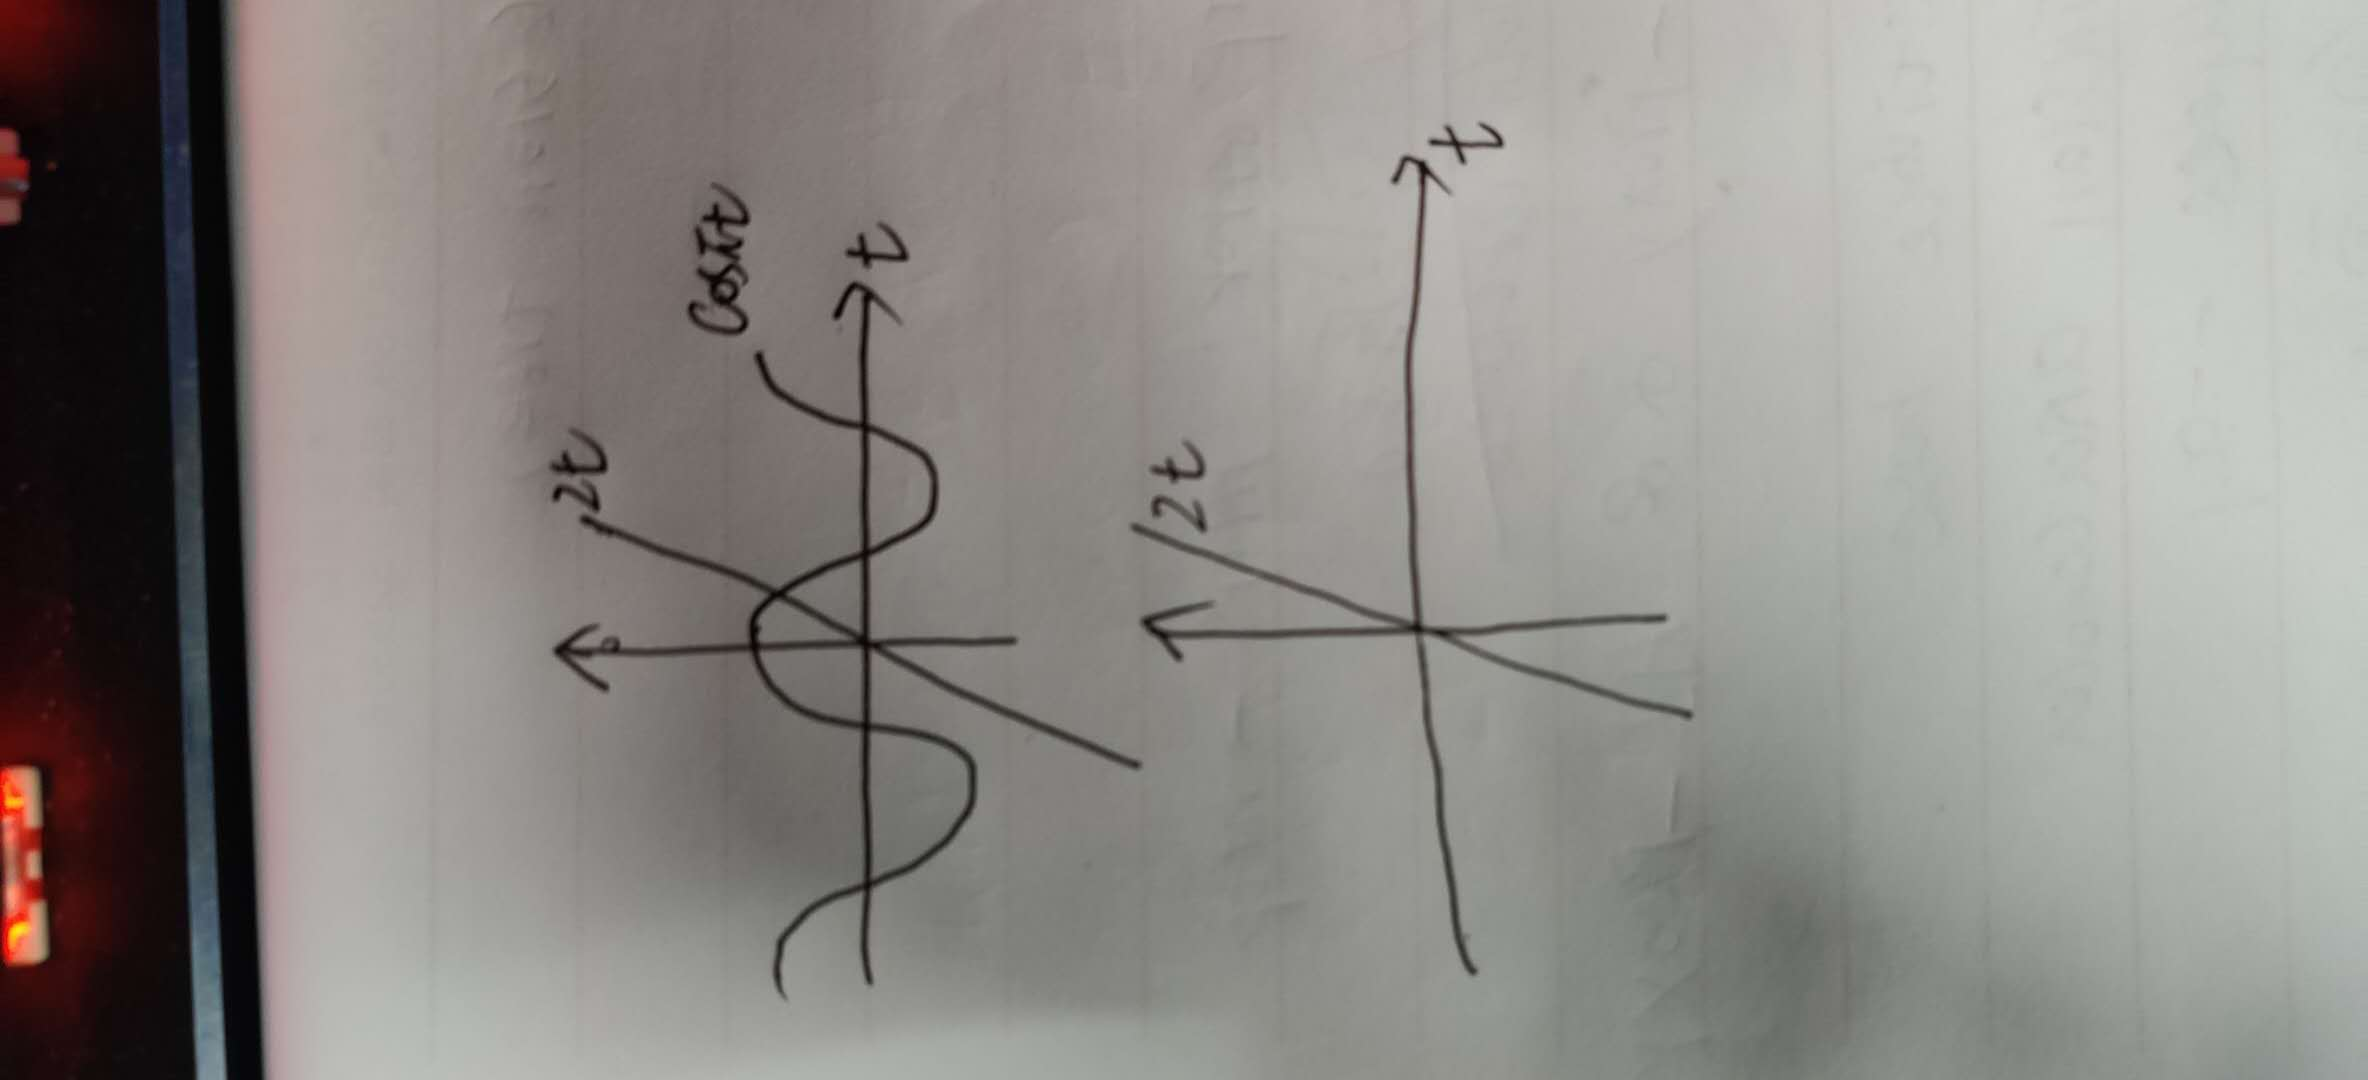 2t
cosπt
t
2t
t